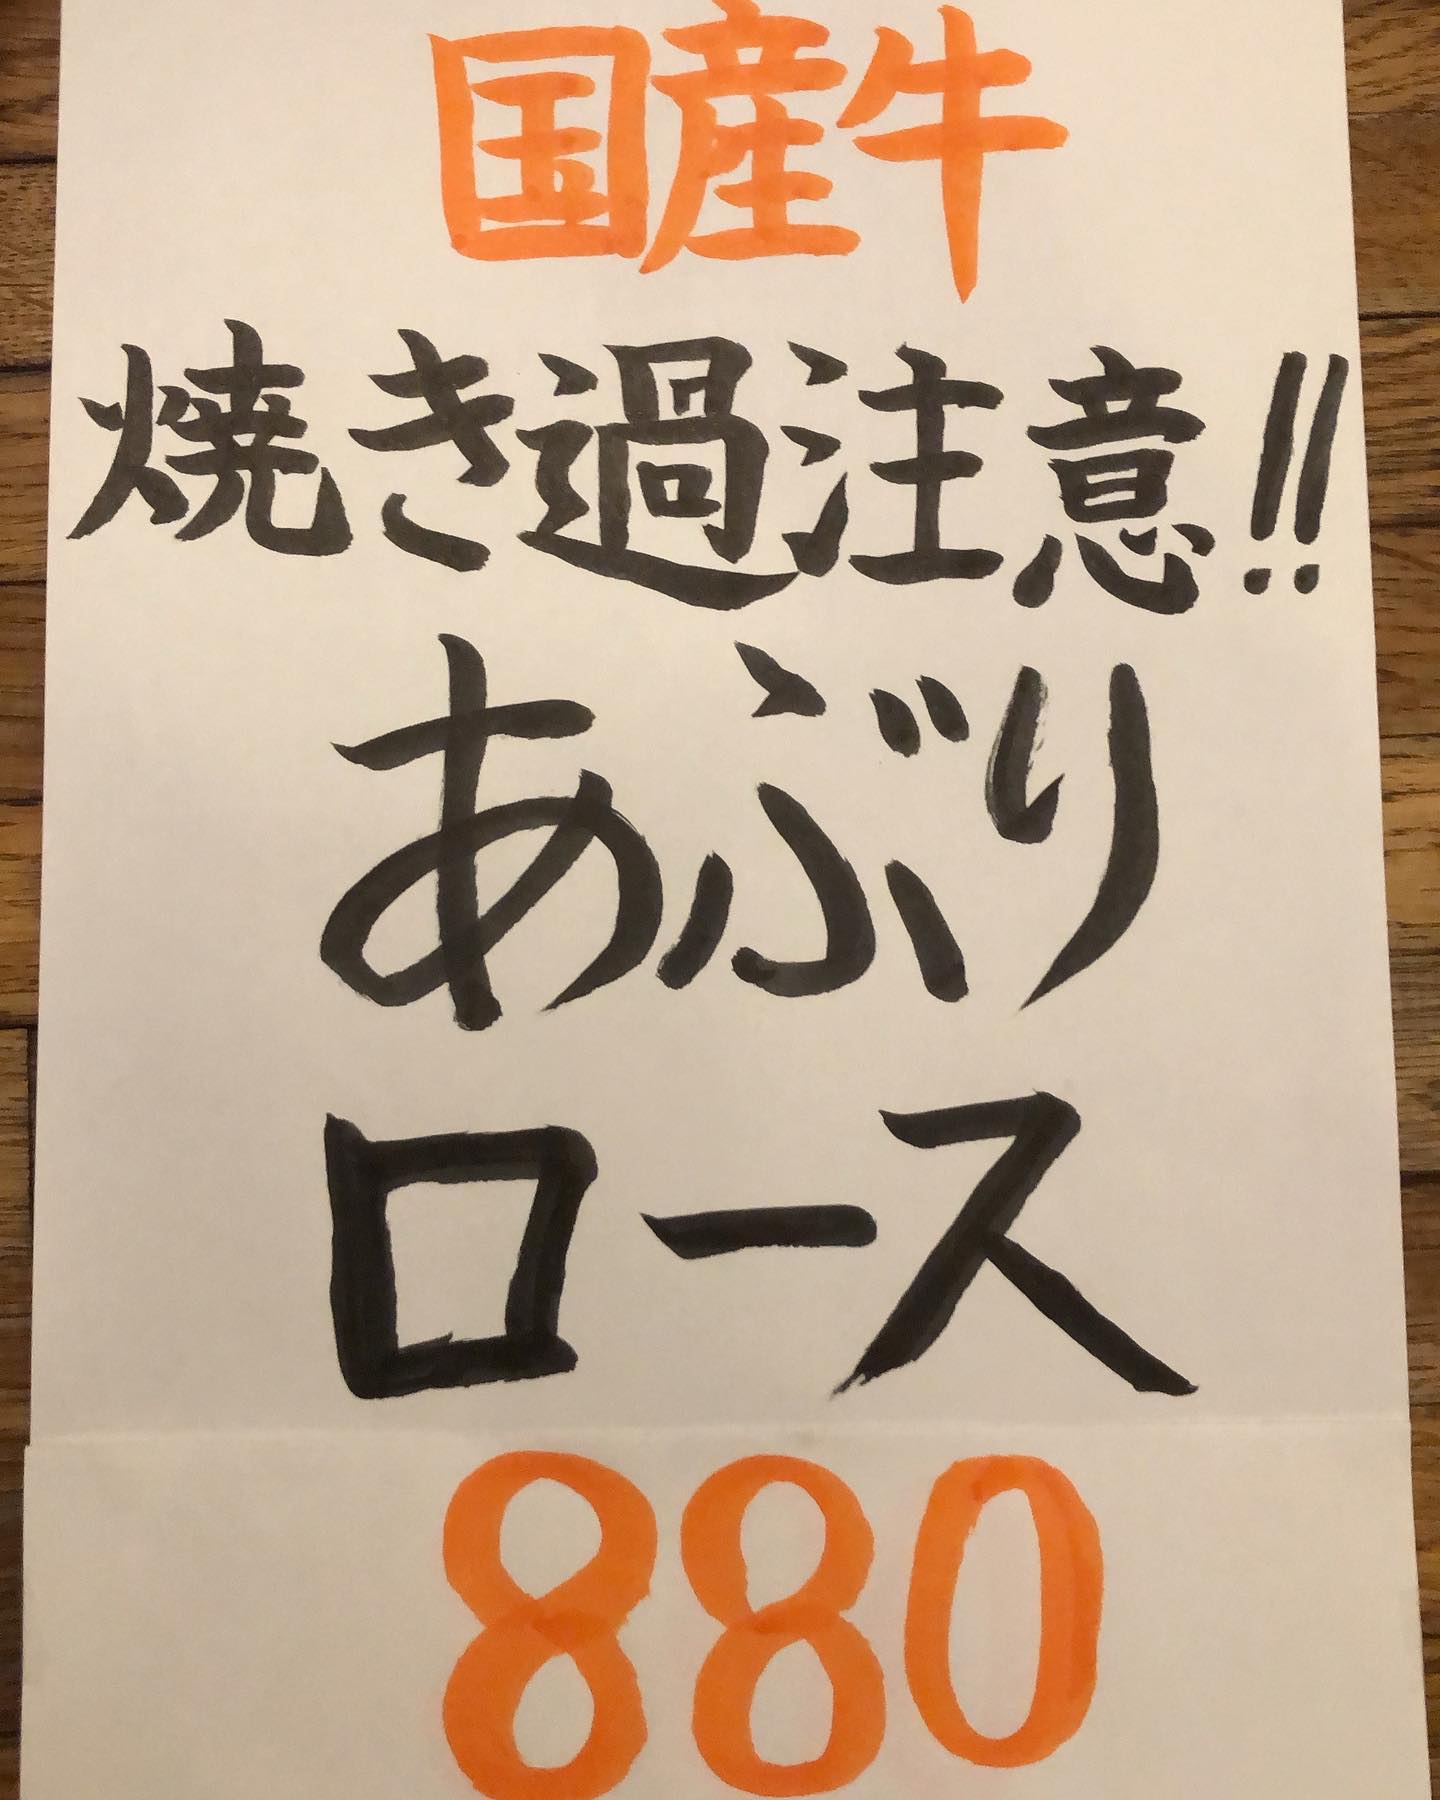 国産牛
焼き過注意!!
あぶり
ロース
880